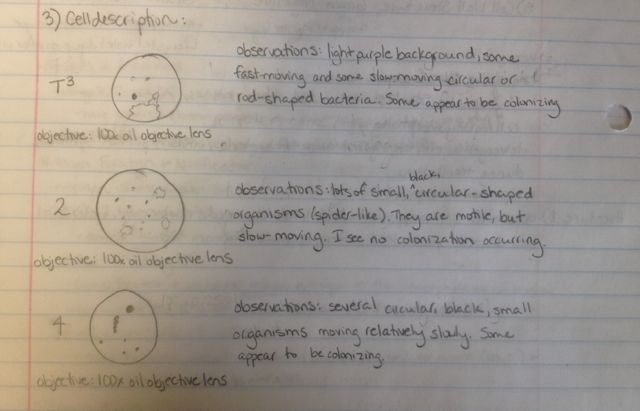 3) Cell description:
observations: light purple background, some
fast-moving and some slow-moving circular or
T³
rod-shaped bacteria. Some appear to be colonizing
objective: 100x oil objective lens
observations: lots of small, black, circular-shaped
2
organisms (spider-like). They are motile, but
slow-moving. I see no colonization occurring.
objective: 100x oil objective lens
observations: several circular, black, small
4
organisms moving relatively slowly. Some
appear to be colonizing.
objective: 100x oil objective lens